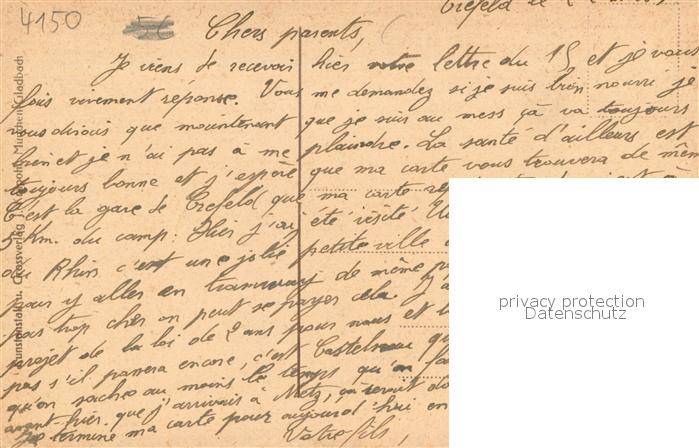 4150
5€
Crefeld le
Chers parents,
Je viens de recevoir hier votre lettre du 15 et je vous
fais vivement réponse. Vous me demandez si je suis bien nourri je
vous dirais que maintenant que je suis au mess ça va toujours
bien et je n'ai pas à me plaindre. La santé d'ailleurs est
toujours bonne et j'espère que ma carte vous trouvera de même
C'est la gare de Crefeld que ma carte
5 Km. du camp. Hier j'ai été visité
du Rhin c'est une jolie petite ville
pour y aller en tramway de même
pas trop cher on peut se payer cela
projet de la loi de 2 ans pour nous et
pas s'il passera encore, c'est Castelnau
qu'on sache au moins le temps qu'on
avant-hier que j'arrivais à Metz, ça serait
Je termine ma carte pour aujourd'hui en
Votre fils,
Kunstanstalt u. Grossverlag München-Gladbach
privacy protection
Datenschutz